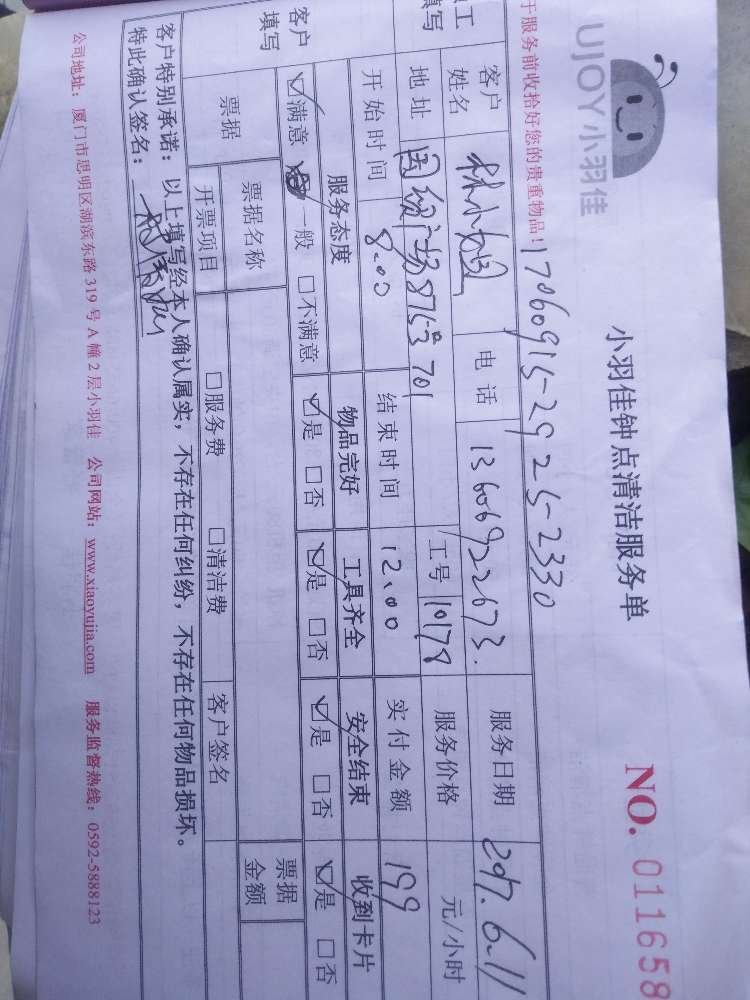 UJOY小羽佳
小羽佳钟点清洁服务单
NO. 011658
于服务前收拾好您的贵重物品！
17060915-2925-2330
工
填写
客户姓名 林小姐 电话 13606922673. 服务日期 2017.6.11
地址 国贸广场 701 工号 10178 服务价格 元/小时
开始时间 8.00 结束时间 12.00 实付金额 199
客户填写
服务态度 物品完好 工具齐全 安全结束 收到卡片
☑满意 一般 □不满意 ☑是 □否 ☑是 □否 ☑是 □否 ☑是 □否
票据 票据名称 票据金额
开票项目 □服务费 □清洁费 客户签名
客户特别承诺：以上填写经本人确认属实，不存在任何纠纷，不存在任何物品损坏。
特此确认签名：
公司地址：厦门市思明区湖滨东路319号A幢2层小羽佳 公司网站：www.xiaoyujia.com 服务监督热线：0592-5888123